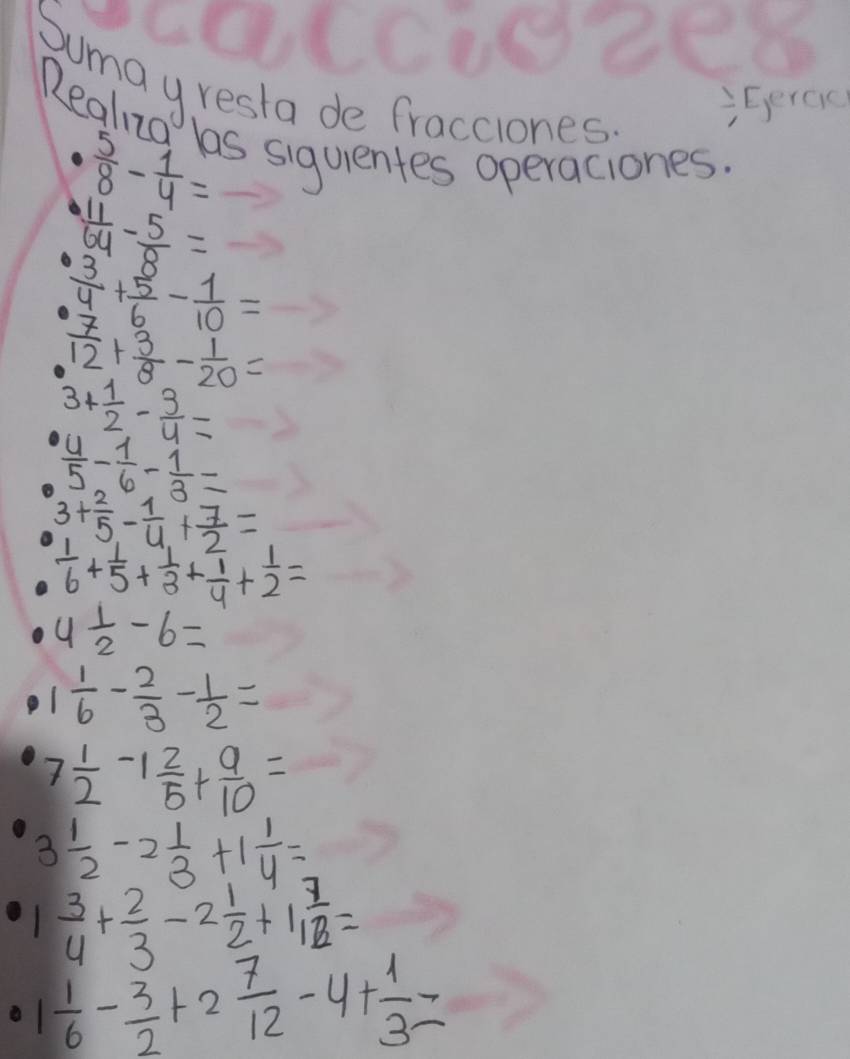 Suma y resta de fracciones.
Realiza las siguientes operaciones.
• 5/8 - 1/4 = →
• 11/64 - 5/8 = →
• 3/4 + 5/6 - 1/10 = →
• 7/12 + 3/8 - 1/20 = →
• 3 + 1/2 - 3/4 = →
• 4/5 - 1/6 - 1/3 = →
• 3 + 2/5 - 1/4 + 7/2 = →
• 1/6 + 1/5 + 1/3 + 1/4 + 1/2 = →
• 4 1/2 - 6 = →
• 1 1/6 - 2/3 - 1/2 = →
• 7 1/2 - 1 2/5 + 9/10 = →
• 3 1/2 - 2 1/3 + 1 1/4 = →
• 1 3/4 + 2/3 - 2 1/2 + 1 7/12 = →
• 1 1/6 - 3/2 + 2 7/12 - 4 + 1/3 = →